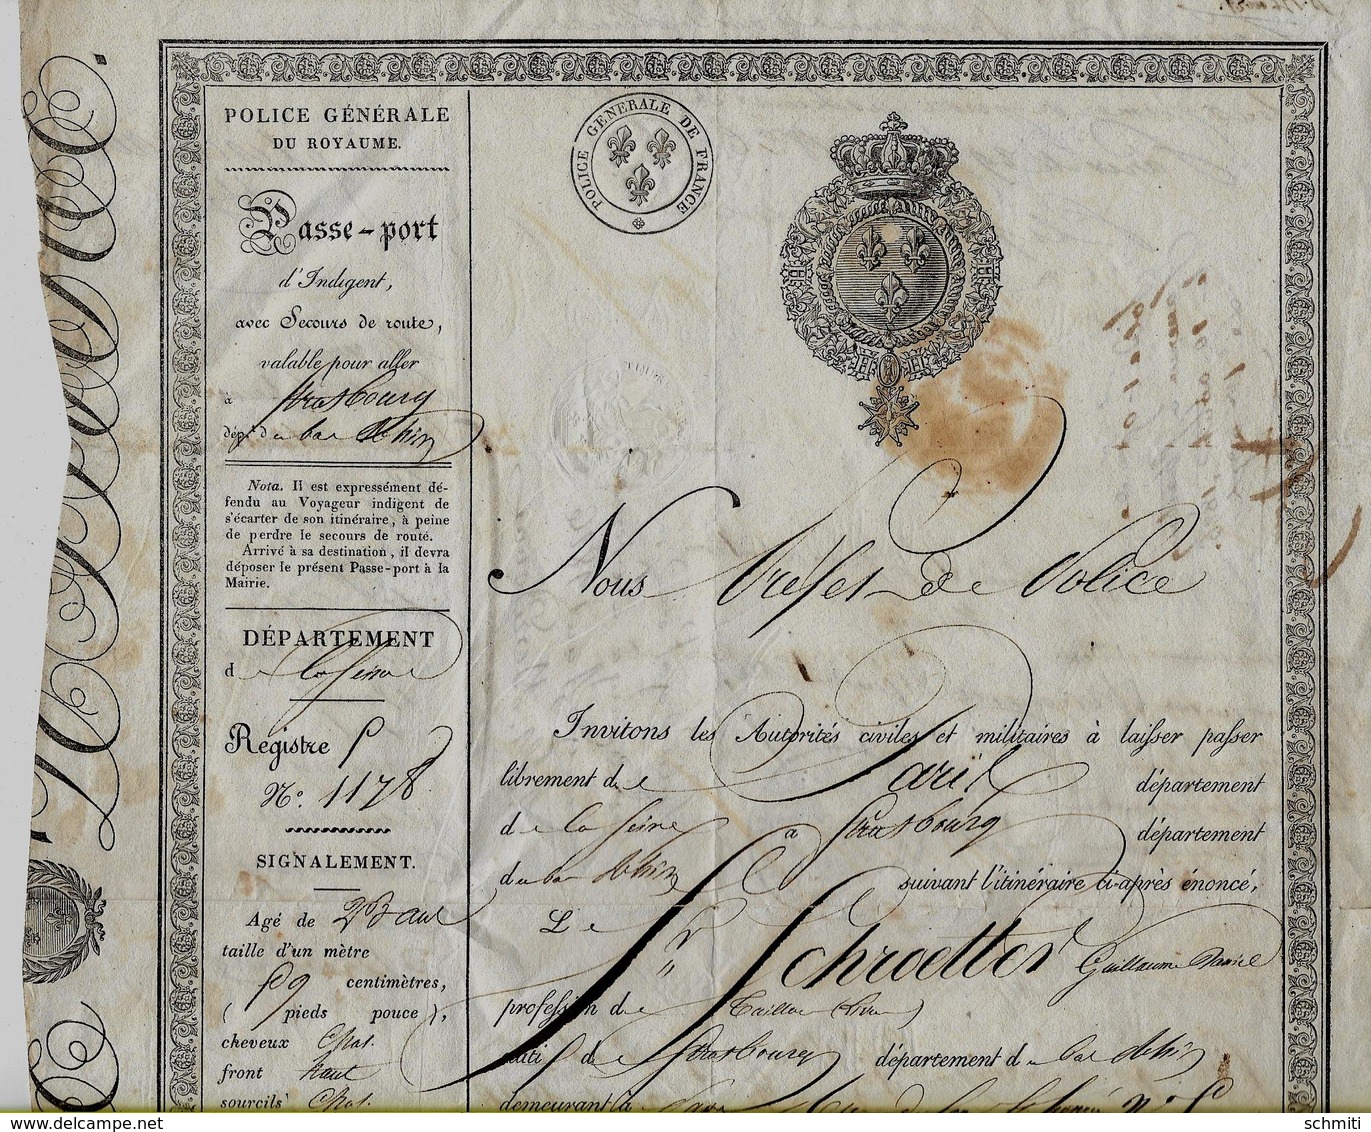 POLICE GÉNÉRALE
DU ROYAUME.
Passe-port
d'Indigent,
avec Secours de route,
valable pour aller
à Strasbourg
dépt. du bas Rhin
Nota. Il est expressément dé-
fendu au Voyageur indigent de
s'écarter de son itinéraire, à peine
de perdre le secours de route.
Arrivé à sa destination, il devra
déposer le présent Passe-port à la
Mairie.
DÉPARTEMENT
de la Seine
Registre
N°. 1178
SIGNALEMENT.
Agé de 23 ans
taille d'un mètre
59 centimètres,
( pieds pouce ),
cheveux Chat.
front haut
sourcils Chat.
POLICE GENERALE DE FRANCE
TIMBRE
Nous Préfet de Police
Invitons les Autorités civiles et militaires à laisser passer
librement de Paris département
de la Seine à Strasbourg département
du bas Rhin suivant l'itinéraire ci-après énoncé,
Le Sr Schroetter Guillaume Daniel
profession de Tailleur
natif de Strasbourg département du bas Rhin
demeurant à Paris Rue de la
schmiti
delcampe.net